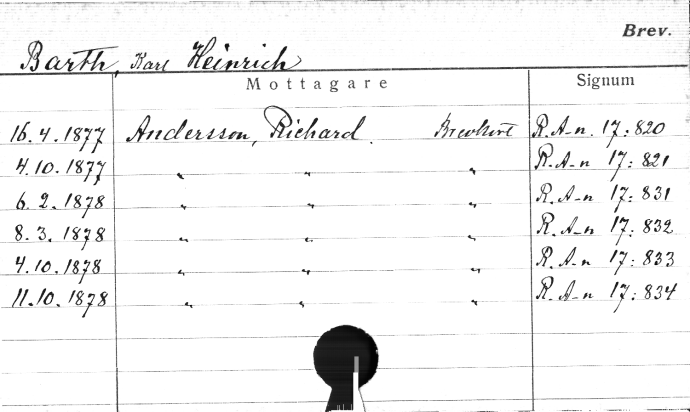 Brev.
Barth, Karl Heinrich
Mottagare Signum
16.4.1877 Andersson, Richard. Brevkort R. A-n. 17:820
4.10.1877 " " " R. A-n 17:821
6.2.1878 " " " R. A-n 17:831
8.3.1878 " " " R. A-n 17:832
4.10.1878 " " " R. A-n 17:833
11.10.1878 " " " R. A-n 17:834